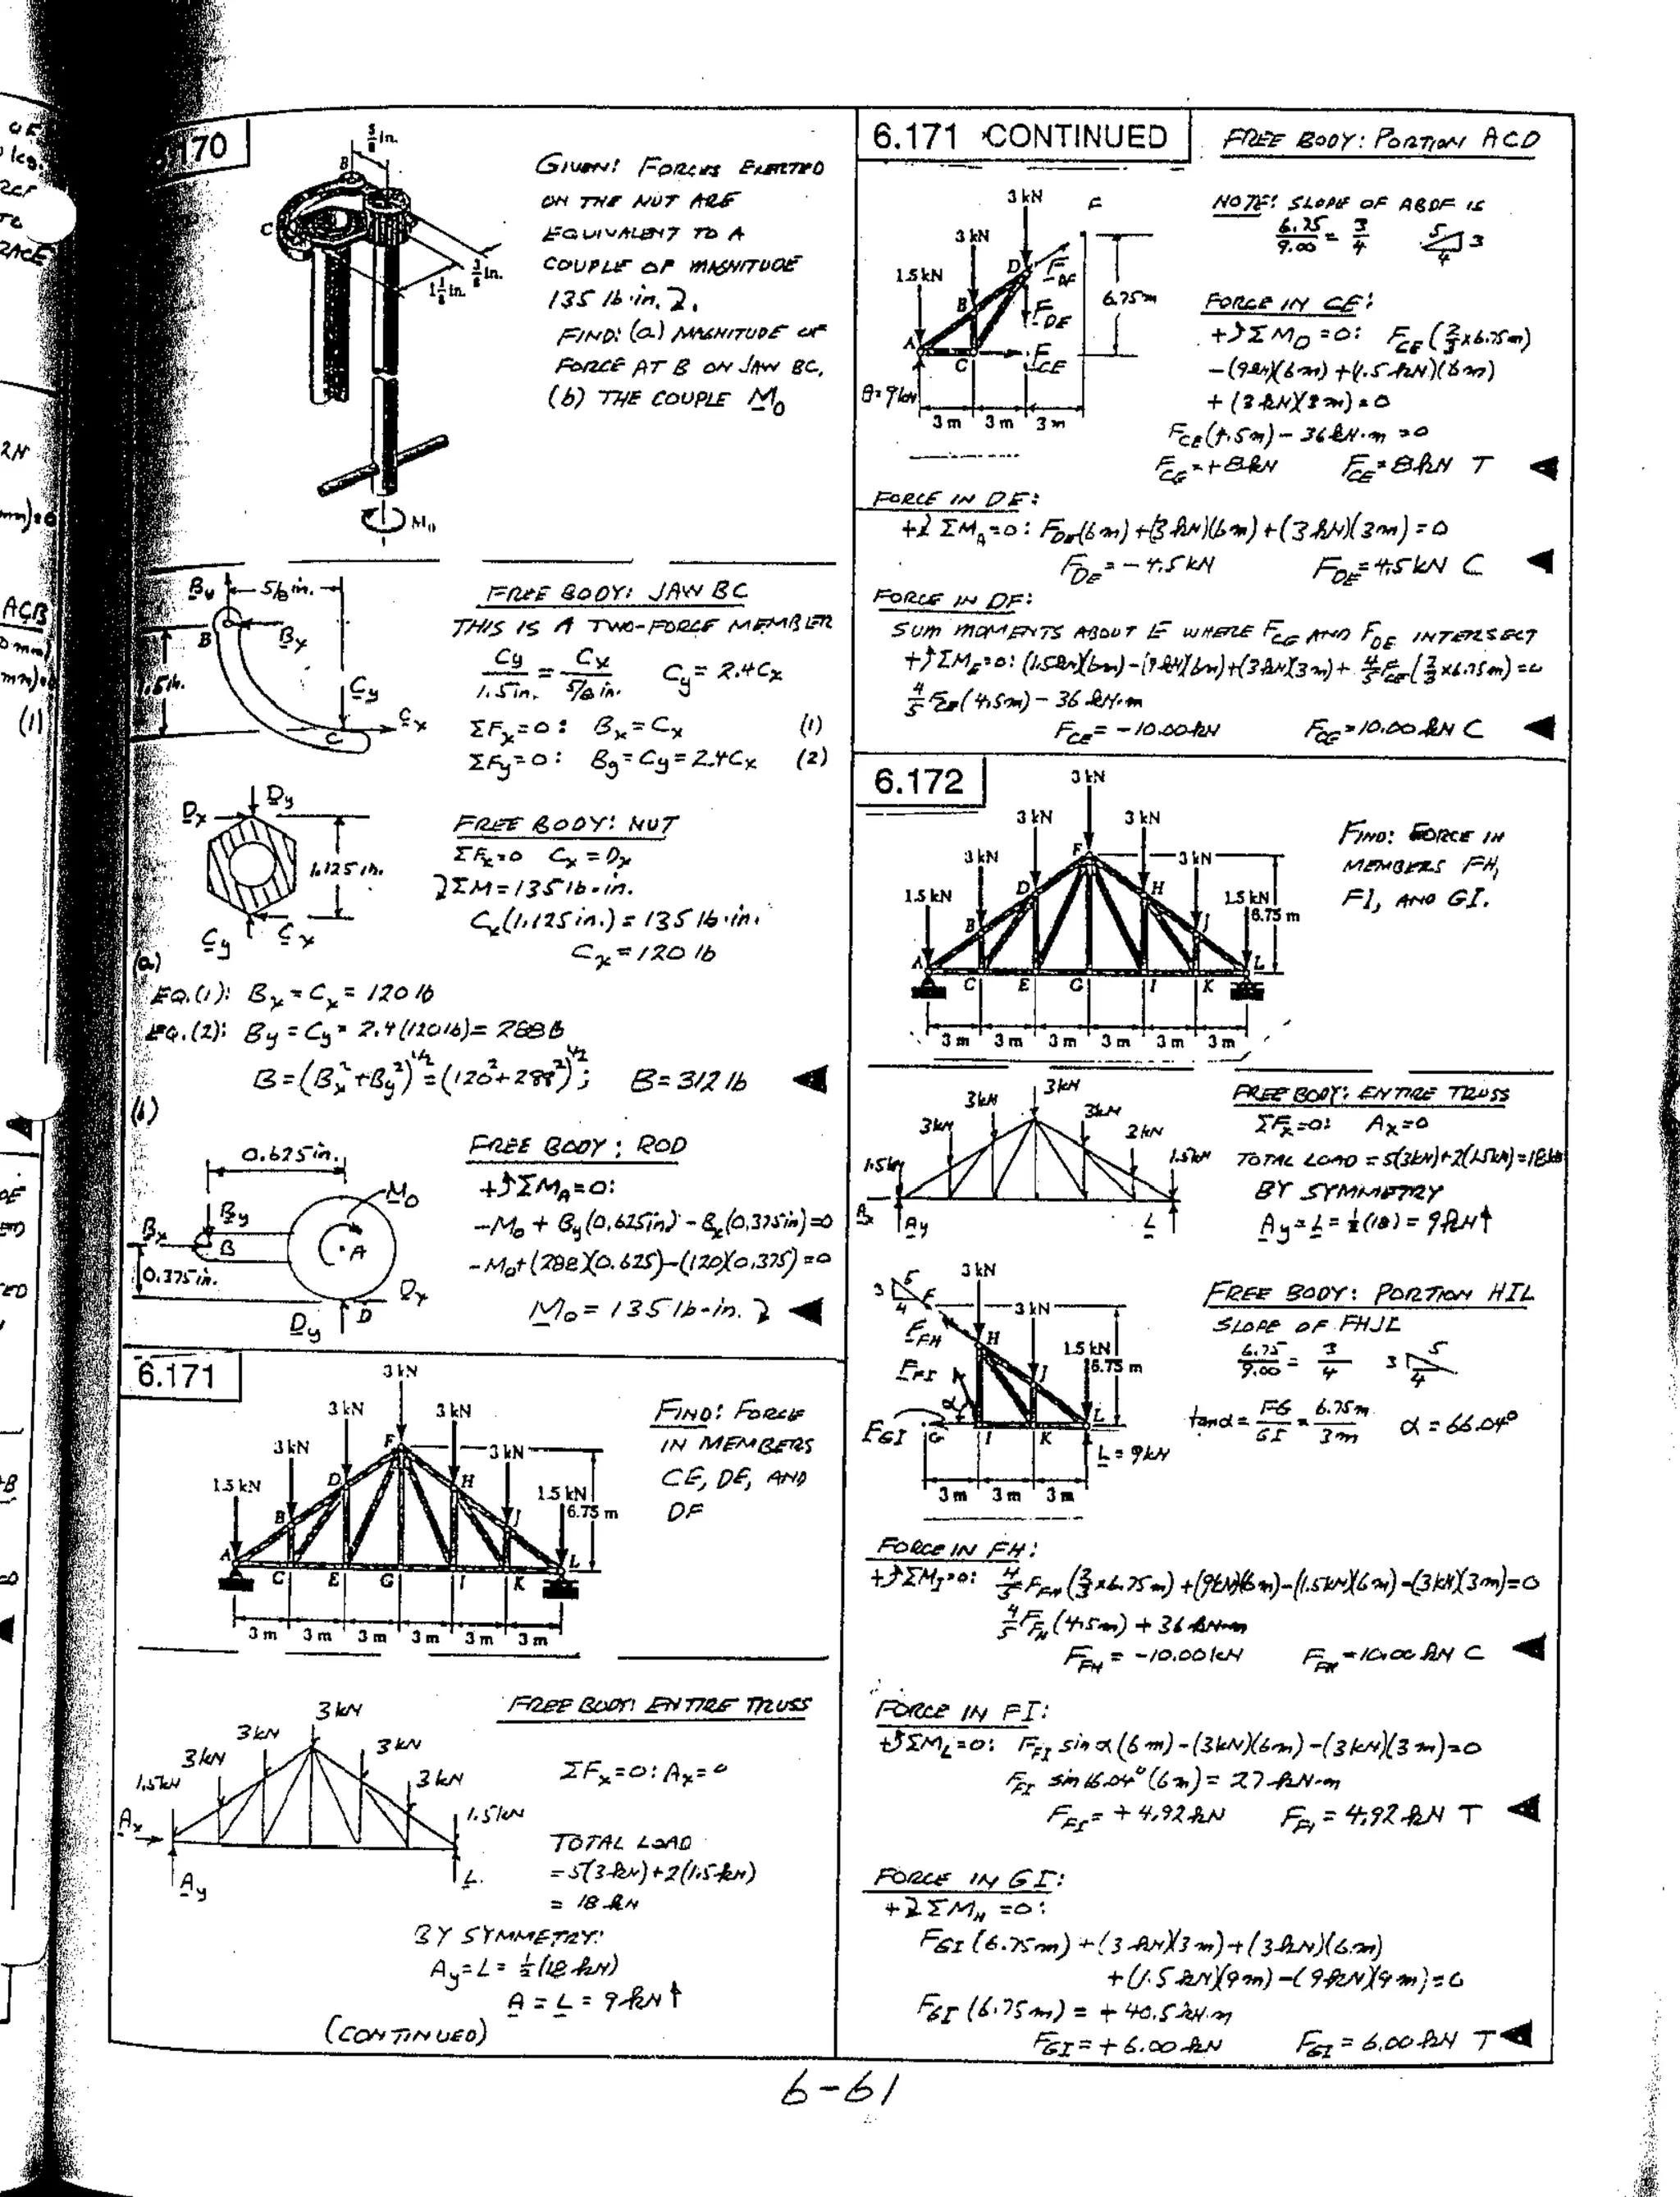 170
5/8 in.
B
C
3/8 in.
1 1/8 in.
M₀
GIVEN: FORCES EXERTED
ON THE NUT ARE
EQUIVALENT TO A
COUPLE OF MAGNITUDE
135 lb·in. ⤸.
FIND: (a) MAGNITUDE OF
FORCE AT B ON JAW BC,
(b) THE COUPLE M₀
By 5/8 in.
B Bx
1.5 in.
Cy
Cx
C
FREE BODY: JAW BC
THIS IS A TWO-FORCE MEMBER
Cy/1.5 in. = Cx/5/8 in. Cy = 2.4Cx
ΣFx=0: Bx = Cx (1)
ΣFy=0: By = Cy = 2.4Cx (2)
Dx Dy
1.125 in.
Cy Cx
FREE BODY: NUT
ΣFx=0 Cx = Dx
⤸ΣM=135 lb·in.
Cx(1.125 in.) = 135 lb·in.
Cx = 120 lb
(a)
EQ.(1): Bx = Cx = 120 lb
EQ.(2): By = Cy = 2.4(120 lb) = 288 lb
B = (Bx²+By²)^1/2 = (120²+288²)^1/2; B = 312 lb ◄
(b)
0.625 in.
M₀
By
Bx
B
A
0.375 in.
Dx
Dy D
FREE BODY: ROD
+⤴ΣM_A=0:
-M₀ + By(0.625in) - Bx(0.375in)=0
-M₀+(288)(0.625)-(120)(0.375)=0
M₀ = 135 lb-in. ⤸ ◄
6.171
3 kN
3 kN 3 kN
3 kN F 3 kN
1.5 kN D H 1.5 kN
B J 6.75 m
A C E G I K L
3 m 3 m 3 m 3 m 3 m 3 m
FIND: FORCE
IN MEMBERS
CE, DE, AND
DF
3 kN
3 kN 3 kN
3 kN 3 kN
1.5 kN 1.5 kN
Ax
Ay L
FREE BODY: ENTIRE TRUSS
ΣFx=0: Ax=0
TOTAL LOAD
= 5(3 kN)+2(1.5 kN)
= 18 kN
BY SYMMETRY:
Ay = L = ½(18 kN)
A = L = 9 kN ↑
(CONTINUED)
6.171 CONTINUED
FREE BODY: PORTION ACD
3 kN F
3 kN
1.5 kN D F_DF
B F_DE 6.75 m
A C F_CE
A=9kN
3 m 3 m 3 m
NOTE: SLOPE OF ABDF IS
6.75/9.00 = 3/4 5 3 4
FORCE IN CE:
+⤴ΣM_D=0: F_CE(2/3×6.75m)
-(9kN)(6m)+(1.5kN)(6m)
+(3kN)(3m)=0
F_CE(4.5m)-36kN·m=0
F_CE=+8kN F_CE=8kN T ◄
FORCE IN DE:
+⤸ΣM_A=0: F_DE(6m)+(3kN)(6m)+(3kN)(3m)=0
F_DE=-4.5kN F_DE=4.5kN C ◄
FORCE IN DF:
SUM MOMENTS ABOUT E WHERE F_CE AND F_DE INTERSECT
+⤴ΣM_E=0: (1.5kN)(6m)-(9kN)(6m)+(3kN)(3m)+ 4/5 F_CE(2/3×6.75m)=0
4/5 F_CE(4.5m)-36kN·m
F_CE=-10.00kN F_CE=10.00kN C ◄
6.172
3 kN
3 kN 3 kN
3 kN F 3 kN
1.5 kN D H 1.5 kN
B J 6.75 m
A C E G I K L
3 m 3 m 3 m 3 m 3 m 3 m
FIND: FORCE IN
MEMBERS FH,
FI, AND GI.
3kN
3kN 3kN
3kN 2kN
1.5kN 1.5kN
Ax Ay L
FREE BODY: ENTIRE TRUSS
ΣFx=0: Ax=0
TOTAL LOAD = 5(3kN)+2(1.5kN)=18kN
BY SYMMETRY
Ay=L=½(18)=9kN↑
5 3 4 F 3 kN
3 kN
F_FH H 1.5 kN
F_FI J 6.75 m
α L
F_GI G I K
L=9kN
3 m 3 m 3 m
FREE BODY: PORTION HIL
SLOPE OF FHJL
6.75/9.00 = 3/4 3 5 4
tanα = FG/GI = 6.75m/3m α=66.04°
FORCE IN FH:
+⤴ΣM_I=0: 4/5 F_FH(2/3×6.75m)+(9kN)(6m)-(1.5kN)(6m)-(3kN)(3m)=0
4/5 F_FH(4.5m)+36kN·m
F_FH=-10.00kN F_FH=10.00kN C ◄
FORCE IN FI:
+⤴ΣM_L=0: F_FI sinα(6m)-(3kN)(6m)-(3kN)(3m)=0
F_FI sin66.04°(6m)=27kN·m
F_FI=+4.92kN F_FI=4.92kN T ◄
FORCE IN GI:
+⤸ΣM_H=0:
F_GI(6.75m)+(3kN)(3m)+(3kN)(6m)
+(1.5kN)(9m)-(9kN)(9m)=0
F_GI(6.75m)=+40.5kN·m
F_GI=+6.00kN F_GI=6.00kN T ◄
6-61